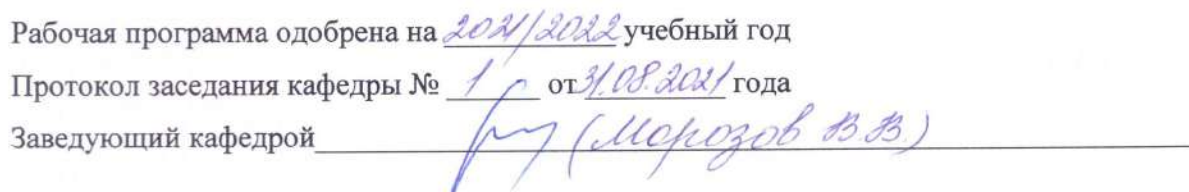 Рабочая программа одобрена на 2021/2022 учебный год
Протокол заседания кафедры № 1 от 31.08.2021 года
Заведующий кафедрой (Морозов В.В.)